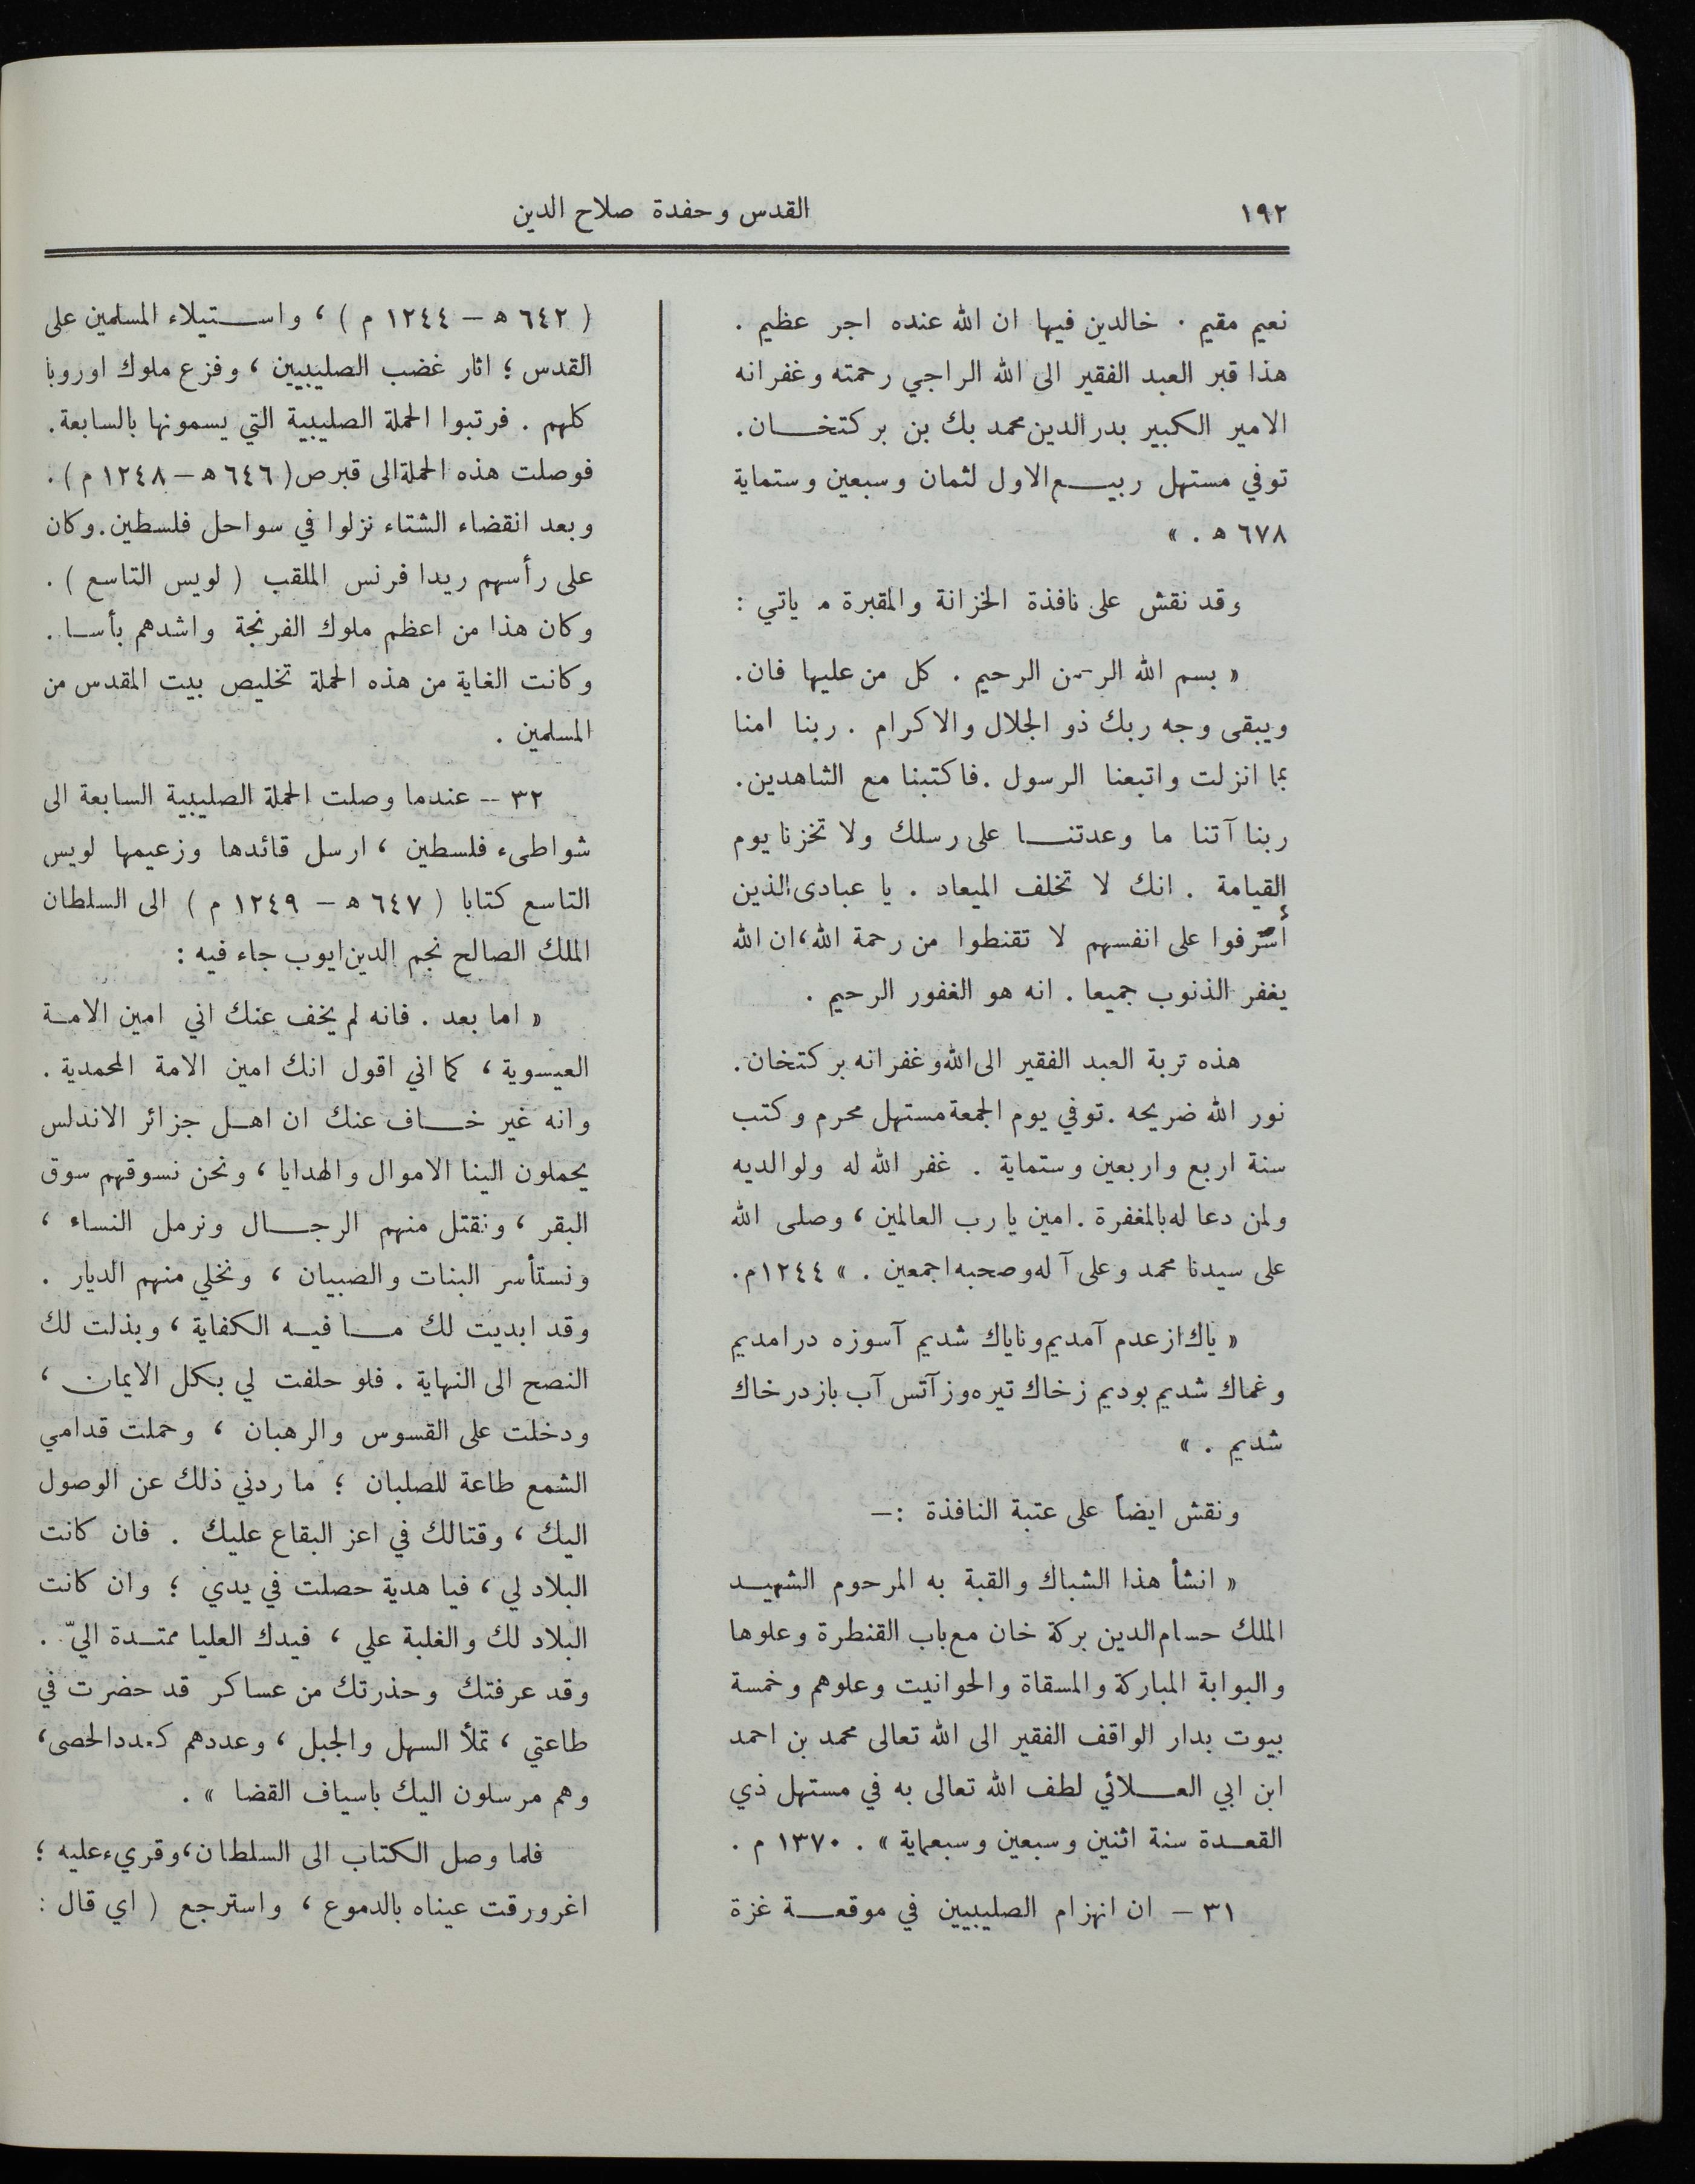 ١٩٢
القدس وحفدة صلاح الدين
نعيم مقيم . خالدين فيها ان الله عنده اجر عظيم .
هذا قبر العبد الفقير الى الله الراجي رحمته وغفرانه
الامير الكبير بدر الدين محمد بك بن بركتخان.
توفي مستهل ربيع الاول لثمان وسبعين وستماية
٦٧٨ ه . »
وقد نقش على نافذة الخزانة والمقبرة م ياتي :
« بسم الله الرحمن الرحيم . كل من عليها فان.
ويبقى وجه ربك ذو الجلال والاكرام . ربنا امنا
بما انزلت واتبعنا الرسول . فاكتبنا مع الشاهدين.
ربنا آتنا ما وعدتنا على رسلك ولا تخزنا يوم
القيامة . انك لا تخلف الميعاد . يا عبادى الذين
أسرفوا على انفسهم لا تقنطوا من رحمة الله، ان الله
يغفر الذنوب جميعا . انه هو الغفور الرحيم .
هذه تربة العبد الفقير الى الله وغفرانه بركتخان.
نور الله ضريحه . توفي يوم الجمعة مستهل محرم وكتب
سنة اربع واربعين وستماية . غفر الله له ولوالديه
ولمن دعا له بالمغفرة . امين يا رب العالمين ، وصلى الله
على سيدنا محمد وعلى آله وصحبه اجمعين . » ١٢٤٤م.
« ياك از عدم آمديم وناياك شديم آسوزه درامديم
وغماك شديم بوديم زخاك تيره وز آتس آب بازدر خاك
شديم . »
ونقش ايضاً على عتبة النافذة :—
« انشأ هذا الشباك والقبة به المرحوم الشهيد
الملك حسام الدين بركة خان مع باب القنطرة وعلوها
والبوابة المباركة والمسقاة والحوانيت وعلوهم وخمسة
بيوت بدار الواقف الفقير الى الله تعالى محمد بن احمد
ابن ابي العلائي لطف الله تعالى به في مستهل ذي
القعدة سنة اثنين وسبعين وسبعماية » . ١٣٧٠ م .
٣١ — ان انهزام الصليبيين في موقعة غزة
( ٦٤٢ ه — ١٢٤٤ م ) ، واستيلاء المسلمين على
القدس ؛ اثار غضب الصليبيين ، وفزع ملوك اوروبا
كلهم . فرتبوا الحملة الصليبية التي يسمونها بالسابعة.
فوصلت هذه الحملة الى قبرص ( ٦٤٦ ه — ١٢٤٨ م ) .
وبعد انقضاء الشتاء نزلوا في سواحل فلسطين. وكان
على رأسهم ريدا فرنس الملقب ( لويس التاسع ) .
وكان هذا من اعظم ملوك الفرنجة واشدهم بأسا .
وكانت الغاية من هذه الحملة تخليص بيت المقدس من
المسلمين .
٣٢ — عندما وصلت الحملة الصليبية السابعة الى
شواطىء فلسطين ، ارسل قائدها وزعيمها لويس
التاسع كتابا ( ٦٤٧ ه — ١٢٤٩ م ) الى السلطان
الملك الصالح نجم الدين ايوب جاء فيه :
« اما بعد . فانه لم يخف عنك اني امين الامة
العيسوية ، كما اني اقول انك امين الامة المحمدية .
وانه غير خاف عنك ان اهل جزائر الاندلس
يحملون الينا الاموال والهدايا ، ونحن نسوقهم سوق
البقر ، ونقتل منهم الرجال ونرمل النساء ،
ونستأسر البنات والصبيان ، ونخلي منهم الديار .
وقد ابديت لك ما فيه الكفاية ، وبذلت لك
النصح الى النهاية . فلو حلفت لي بكل الايمان ،
ودخلت على القسوس والرهبان ، وحملت قدامي
الشمع طاعة للصلبان ؛ ما ردني ذلك عن الوصول
اليك ، وقتالك في اعز البقاع عليك . فان كانت
البلاد لي ، فيا هدية حصلت في يدي ؛ وان كانت
البلاد لك والغلبة علي ، فيدك العليا ممتدة اليّ .
وقد عرفتك وحذرتك من عساكر قد حضرت في
طاعتي ، تملأ السهل والجبل ، وعددهم كعدد الحصى،
وهم مرسلون اليك باسياف القضا » .
فلما وصل الكتاب الى السلطان، وقريء عليه ؛
اغرورقت عيناه بالدموع ، واسترجع ( اي قال :